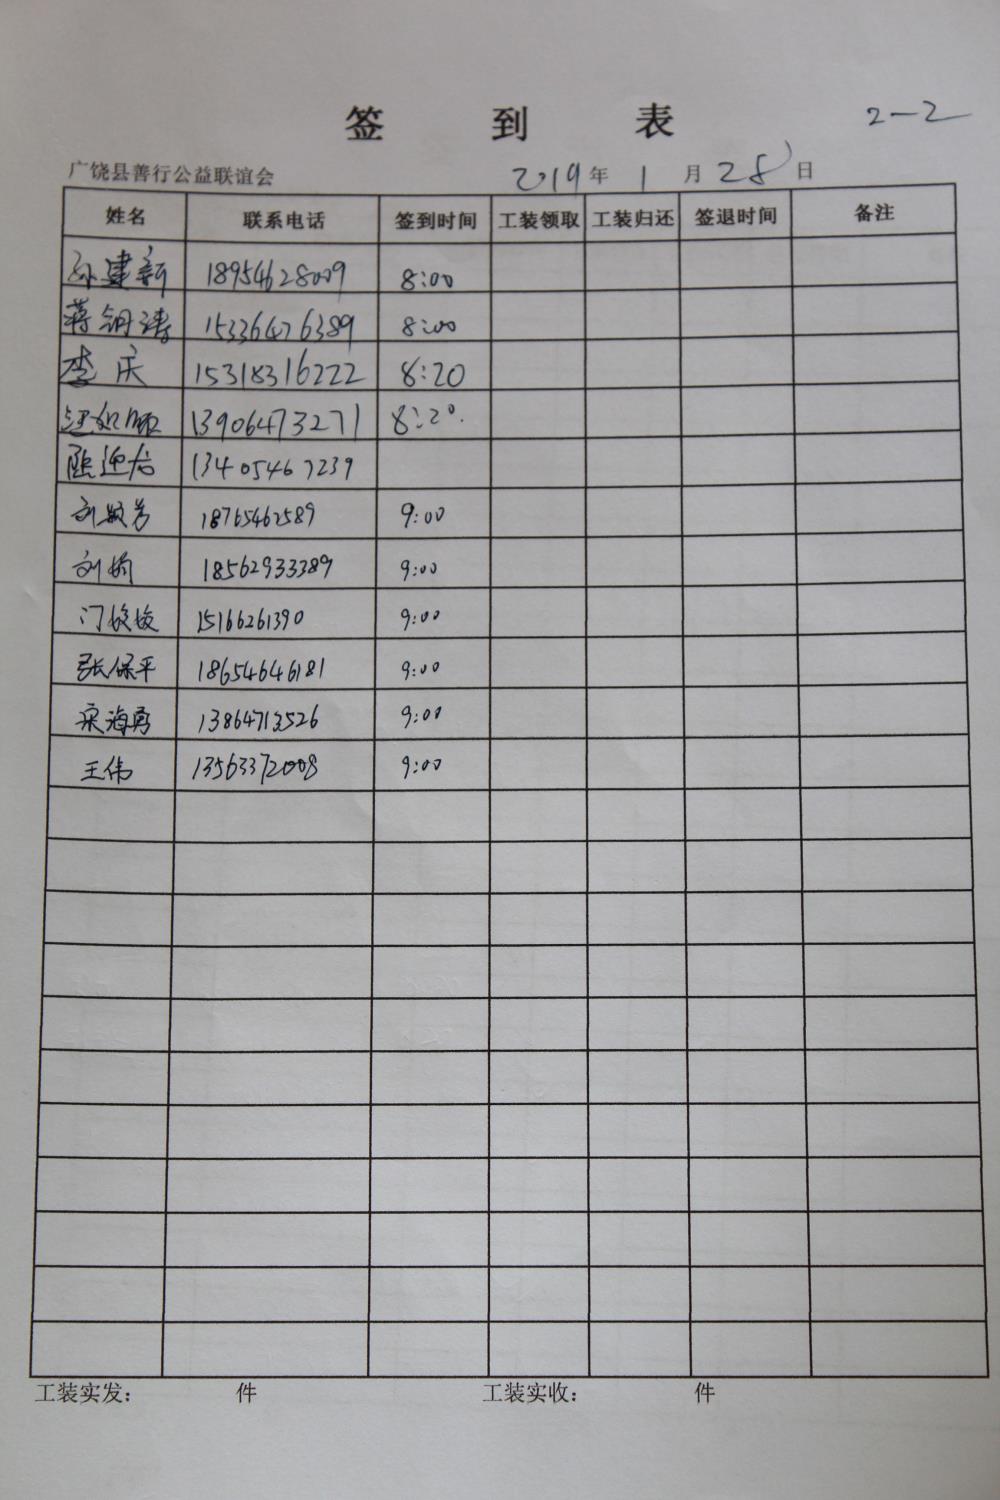 签 到 表 2-2
广饶县善行公益联谊会 2019年 1 月 28 日
姓名 联系电话 签到时间 工装领取 工装归还 签退时间 备注
孙建新 18954628009 8:00
蒋 15336476389 8:00
李庆 15318316222 8:20
13906473271 8:20.
陈迎春 13405467239
刘 芳 18765462589 9:00
刘娟 18562933389 9:00
门 15166261390 9:00
张保平 18654646181 9:00
海勇 13864713526 9:00
王伟 13563372008 9:00
工装实发： 件 工装实收： 件